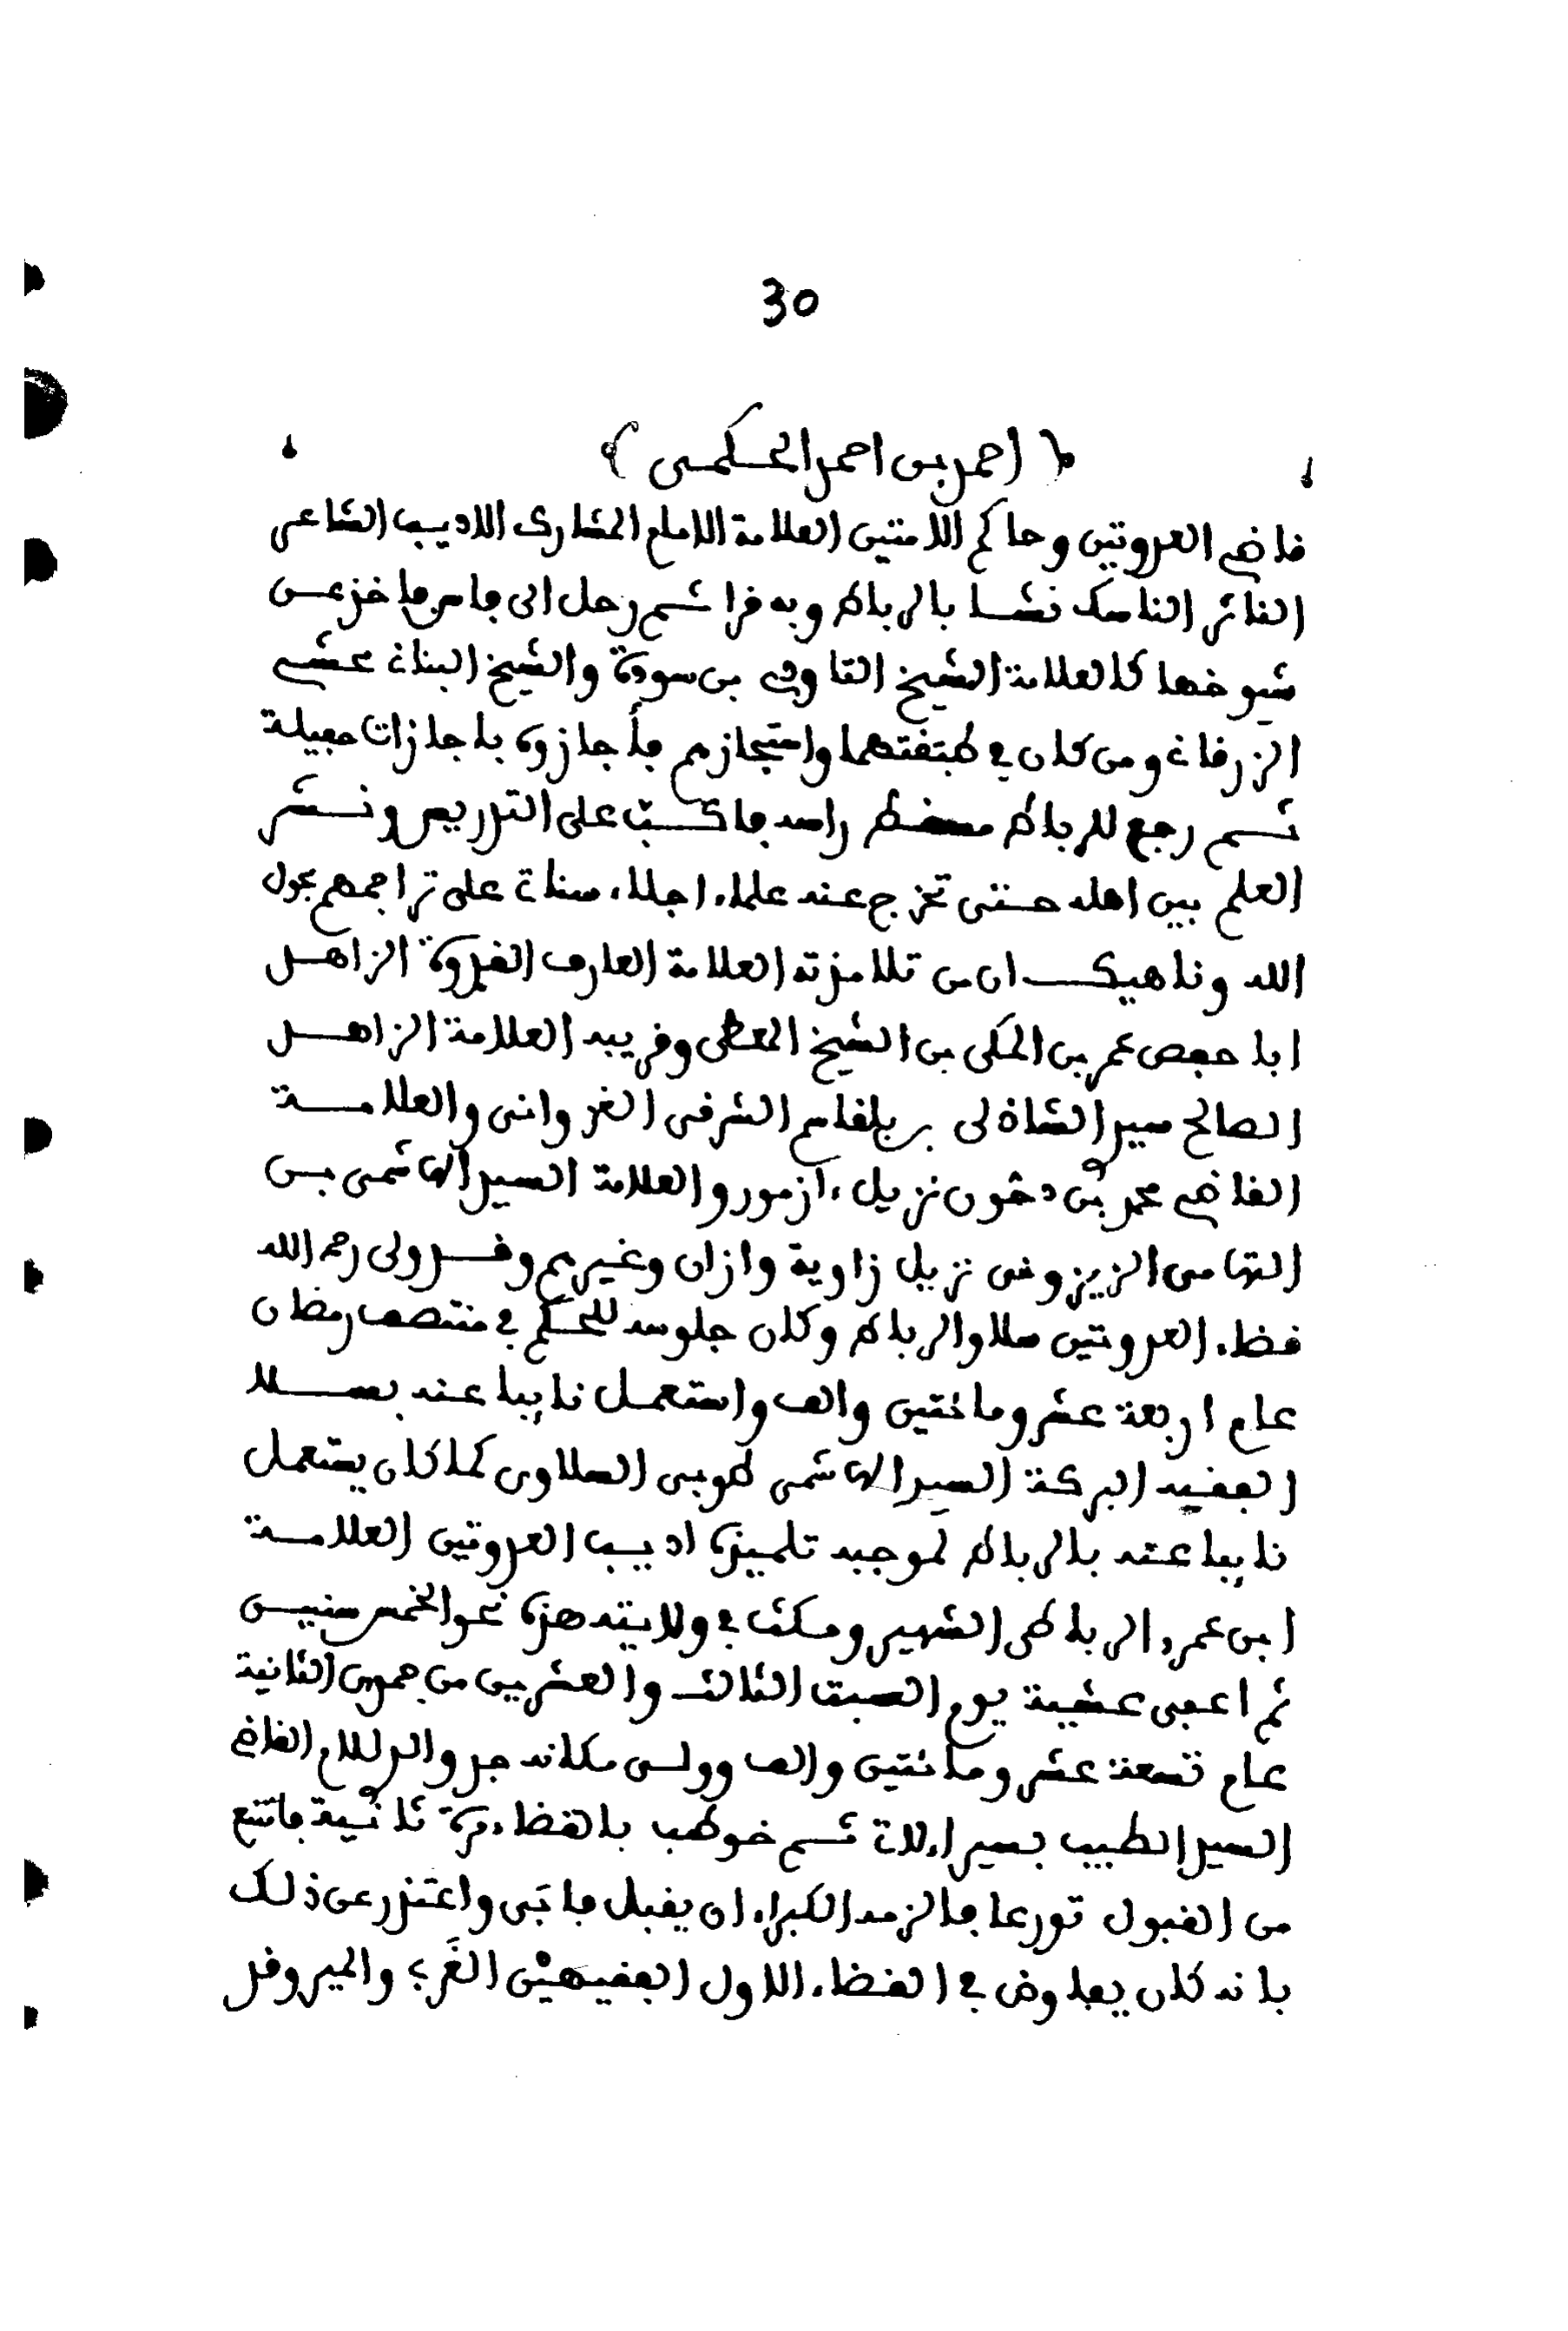 30
﴿ احمد بن احمد الحكمى ﴾
قاضى العدوتين وحاكم الامتين العلامة الامام المشارك الاديب الشاعر
الناثر الناسك نشا بالرباط وبه قرا ثم رحل الى فاس فاخذ عن
شيوخها كالعلامة الشيخ التاودى بن سودة والشيخ البنانى محشى
الزرقانى ومن كان فى طبقتهما واستجازهم فأجازوه باجازات حفيلة
ثم رجع للرباط مسقط راسه فاكب على التدريس ونشر
العلم بين اهله حتى تخرج عنه علماء اجلاء ستاتى على تراجمهم بحول
الله وناهيك ان من تلامذته العلامة العارف القدوة الزاهد
ابا حفص عمر بن المكى بن الشيخ المعطى وقريبه العلامة الزاهد
الصالح سيد الشاذلى بن بلقاسم الشرقى الغزوانى والعلامة
القاضى محمد بن دحون نزيل ءازمور والعلامة السيد الهاشمى بن
التهامى الزيزونى نزيل زاوية وازان وغيرهم وقد ولى رحمه الله
قضاء العدوتين سلا والرباط وكان جلوسه للحكم فى منتصف رمضان
عام اربعة عشر ومائتين والف واستعمل نايبا عنه بسلا
الفقيه البركة السيد الهاشمى طوبى السلاوى كما كان يستعمل
نايبا عنه بالرباط لموجبه تلميذه اديب العدوتين العلامة
ابن عمرو الرباطى الشهير ومكث فى ولايته هذه نحو الخمس سنين
ثم اعفى عشية يوم السبت الثالث والعشرين من جمدى الثانية
عام تسعة عشر ومائتين والف وولى مكانه جد والد للام القاضى
السيد الطيب بسير ثم خوطب بالقضاء مرة ثانية فامتنع
من القبول تورعا فالزمه الكبراء ان يقبل فابى واعتذر عن ذلك
بانه كان يفاوض فى القضاء الاول الفقيهين الغربى والمير وقد